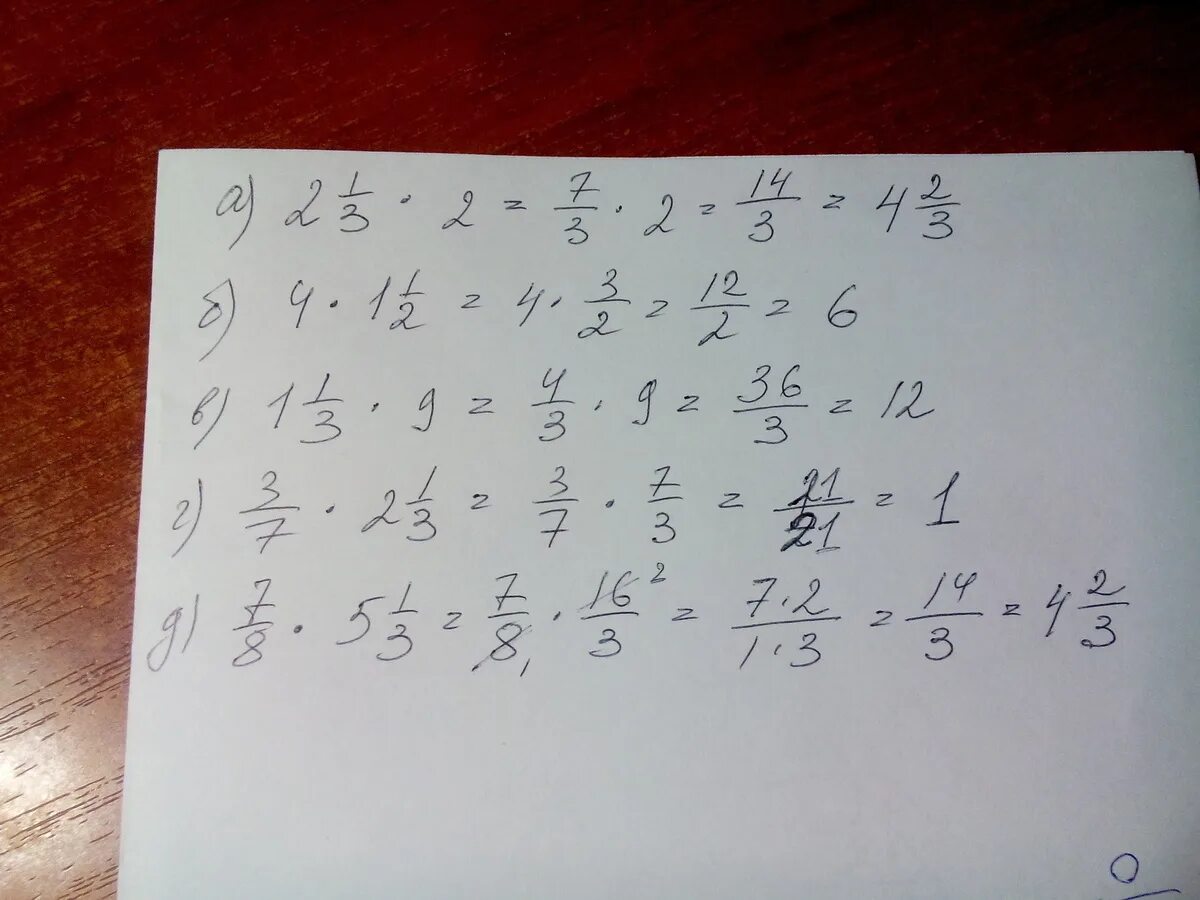 а) 2 1/3 · 2 = 7/3 · 2 = 14/3 = 4 2/3
б) 4 · 1 1/2 = 4 · 3/2 = 12/2 = 6
в) 1 1/3 · 9 = 4/3 · 9 = 36/3 = 12
г) 3/7 · 2 1/3 = 3/7 · 7/3 = 21/21 = 1
д) 7/8 · 5 1/3 = 7/8 1 · 16 2/3 = 7·2/1·3 = 14/3 = 4 2/3